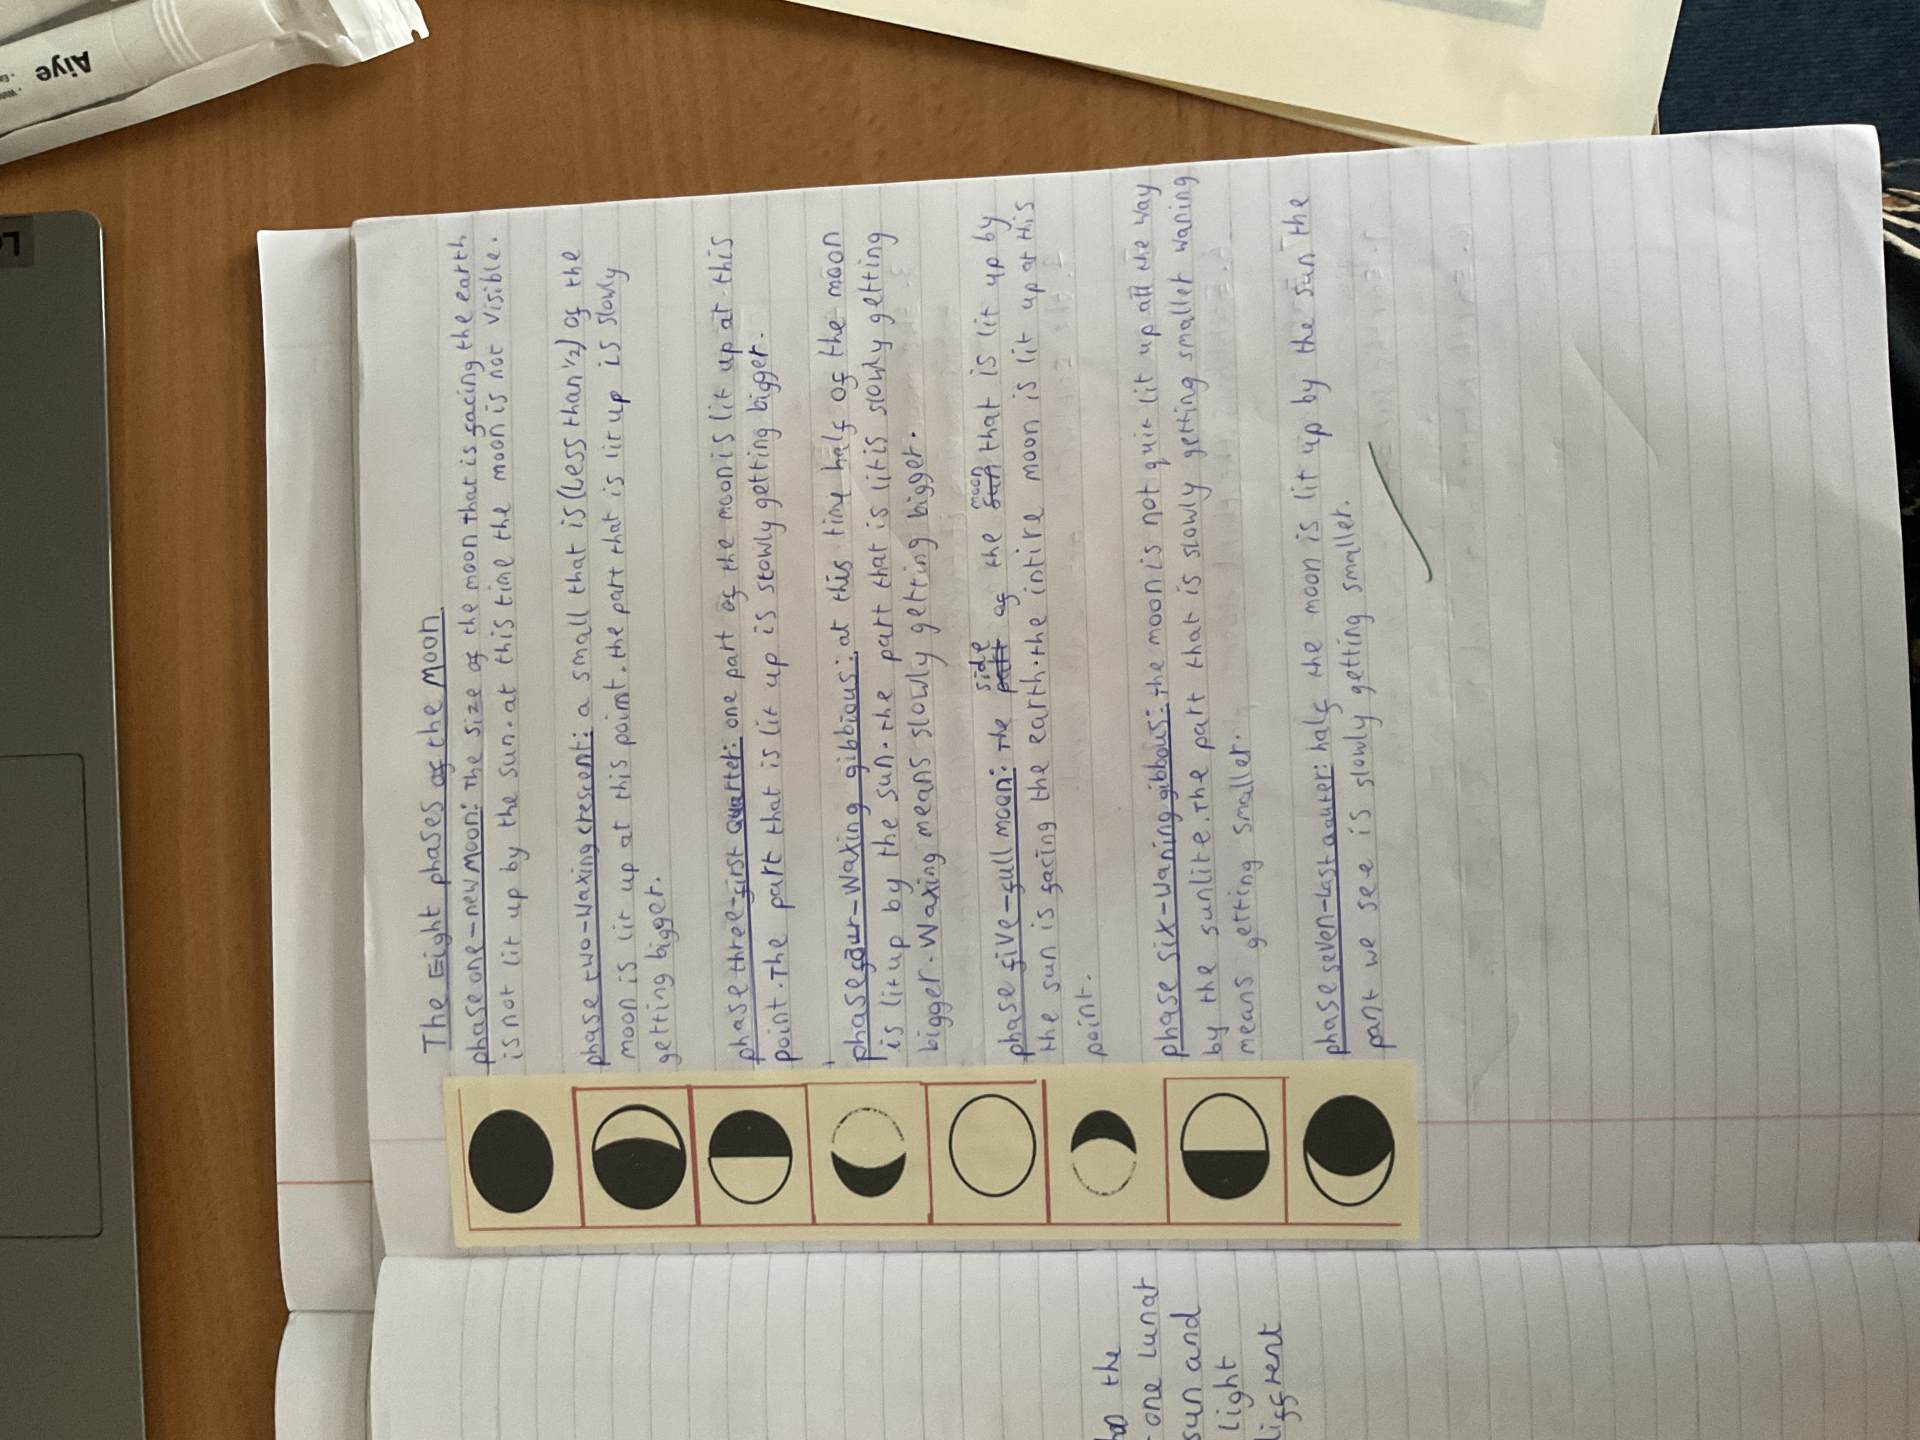 The Eight phases of the Moon
phase one-new moon: the size of the moon that is facing the earth
is not lit up by the sun. at this time the moon is not visible.
phase two-waxing cresent: a small that is (Less than 1/2) of the
moon is lit up at this point. the part that is lit up is slowly
getting bigger.
phase three-first Quarter: one part of the moon is lit up at this
point. The part that is lit up is slowly getting bigger.
phase four-waxing gibbious: at this time half of the moon
is lit up by the sun. the part that is lit is slowly getting
bigger. Waxing means slowly getting bigger.
phase five-full moon: The part side of the sun moon that is lit up by
the sun is facing the earth. the intire moon is lit up at this
point.
phase six-waning gibbous: the moon is not quit lit up all the way
by the sunlite. The part that is slowly getting smaller waning
means getting smaller.
phase seven-last qauter: half the moon is lit up by the sun the
part we see is slowly getting smaller.
the
one lunar
sun and
Light
Aiye